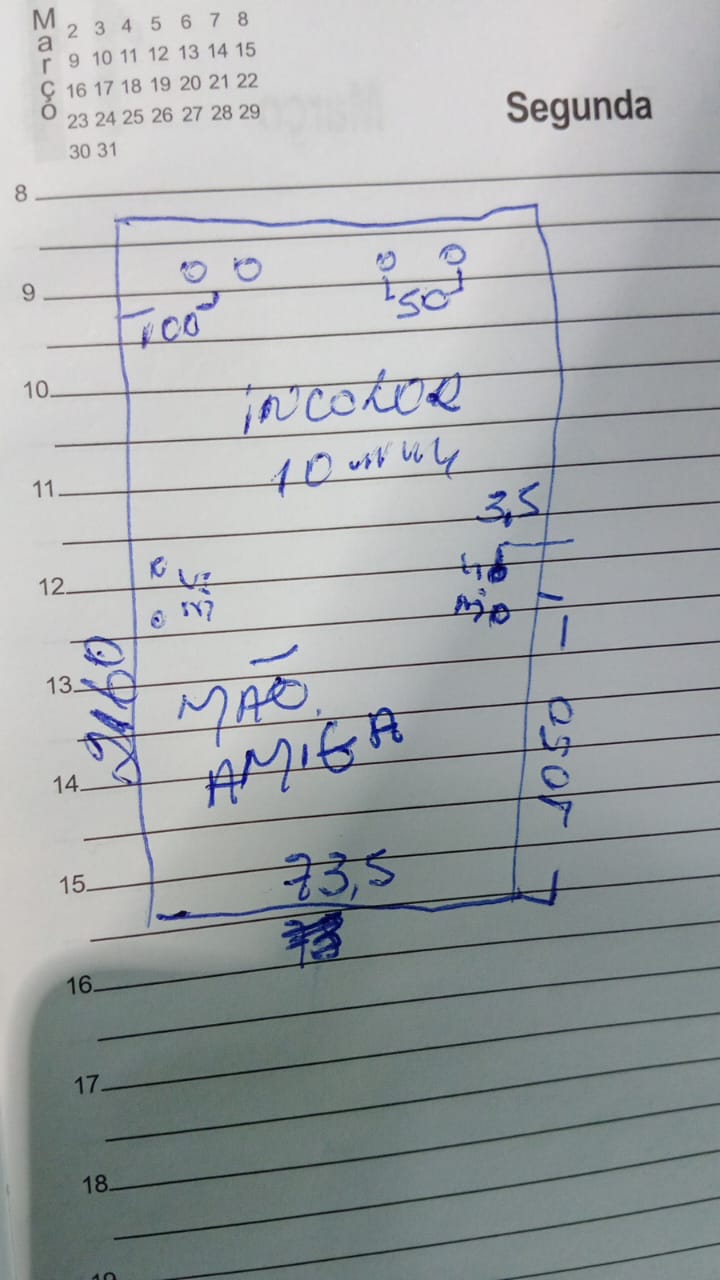 Março
2 3 4 5 6 7 8
9 10 11 12 13 14 15
16 17 18 19 20 21 22
23 24 25 26 27 28 29
30 31
Segunda
8
9
100
50
10
INCOLOR
10 mm
11
3,5
12
2160
13
MÃO
AMIGA
1050
14
73,5
15
16
17
18
19